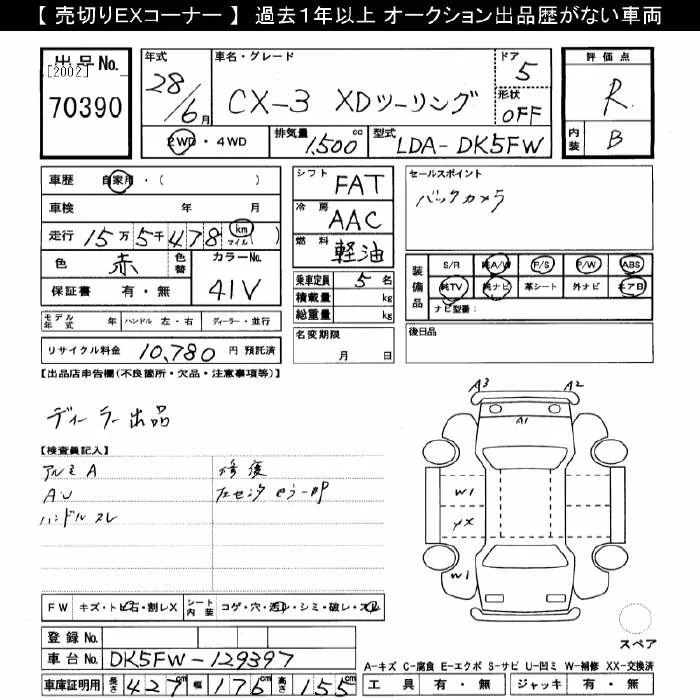 【 売切りEXコーナー 】 過去１年以上 オークション出品歴がない車両
出品No. [2002] 70390
年式 28/6月
車名・グレード CX-3 XDツーリング
ドア 5
形状 OFF
評価点 R
内装 B
2WD・4WD 排気量 1,500 cc 型式 LDA-DK5FW
車歴 自家用・( )
車検 年 月
走行 15万5千478 km マイル( )
色 赤 色替 カラーNo. 41V
保証書 有・無
シフト FAT
冷房 AAC
燃料 軽油
乗車定員 5名
積載量 kg
総重量 kg
名変期限 月 日
セールスポイント
バックカメラ
装備品 S/R 純A/W P/S P/W ABS
純TV 純ナビ 革シート 外ナビ エアB
ナビ型番:
後日品
モデル年式 年 ハンドル 左・右 ディーラー・並行
リサイクル料金 10,780 円 預託済
【出品店申告欄(不良箇所・欠品・注意事項等)】
ディーラー出品
【検査員記入】
アルミA 修復
AU
ハンドルスレ
A3 A2
A1
W1
XX
W1
スペア
FW キズ・トビ石・割レX シート内装 コゲ・穴・汚レ・シミ・破レ・スレ
登録No.
車台No. DK5FW-129397
車庫証明用 長さ 427cm 幅 176cm 高さ 155cm
A-キズ C-腐食 E-エクボ S-サビ U-凹ミ W-補修 XX-交換済
工具 有・無 ジャッキ 有・無